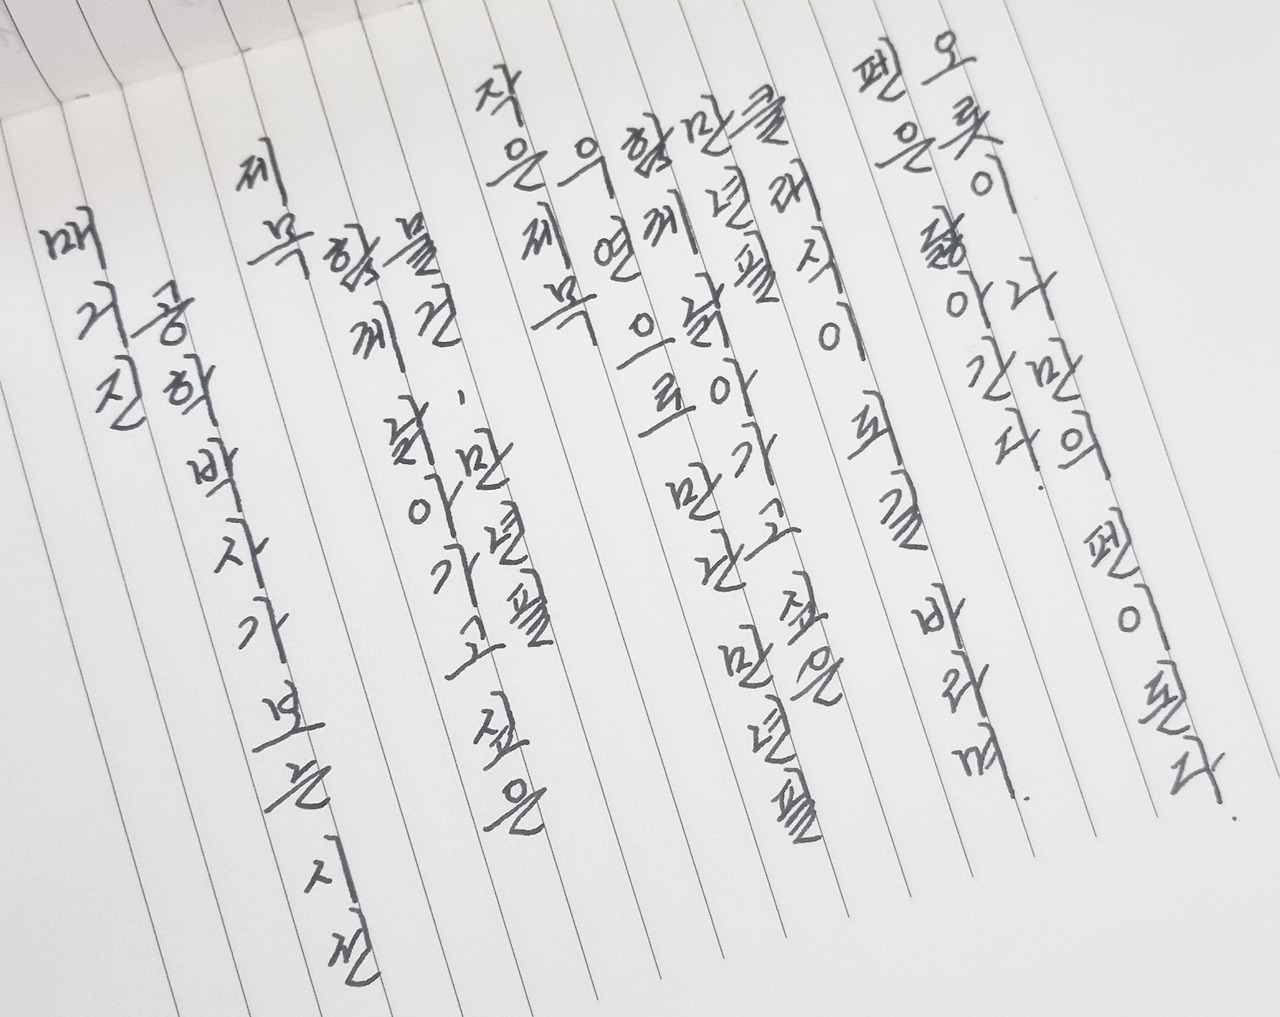 매거진
공학박사가 보는 시선
제목
함께 낡아가고 싶은
물건, 만년필
작은 제목
우연으로 만난 만년필
함께 낡아가고 싶은
만년필
클래식이 되길 바라며.
펜은 닳아간다.
오롯이 나만의 펜이 된다.